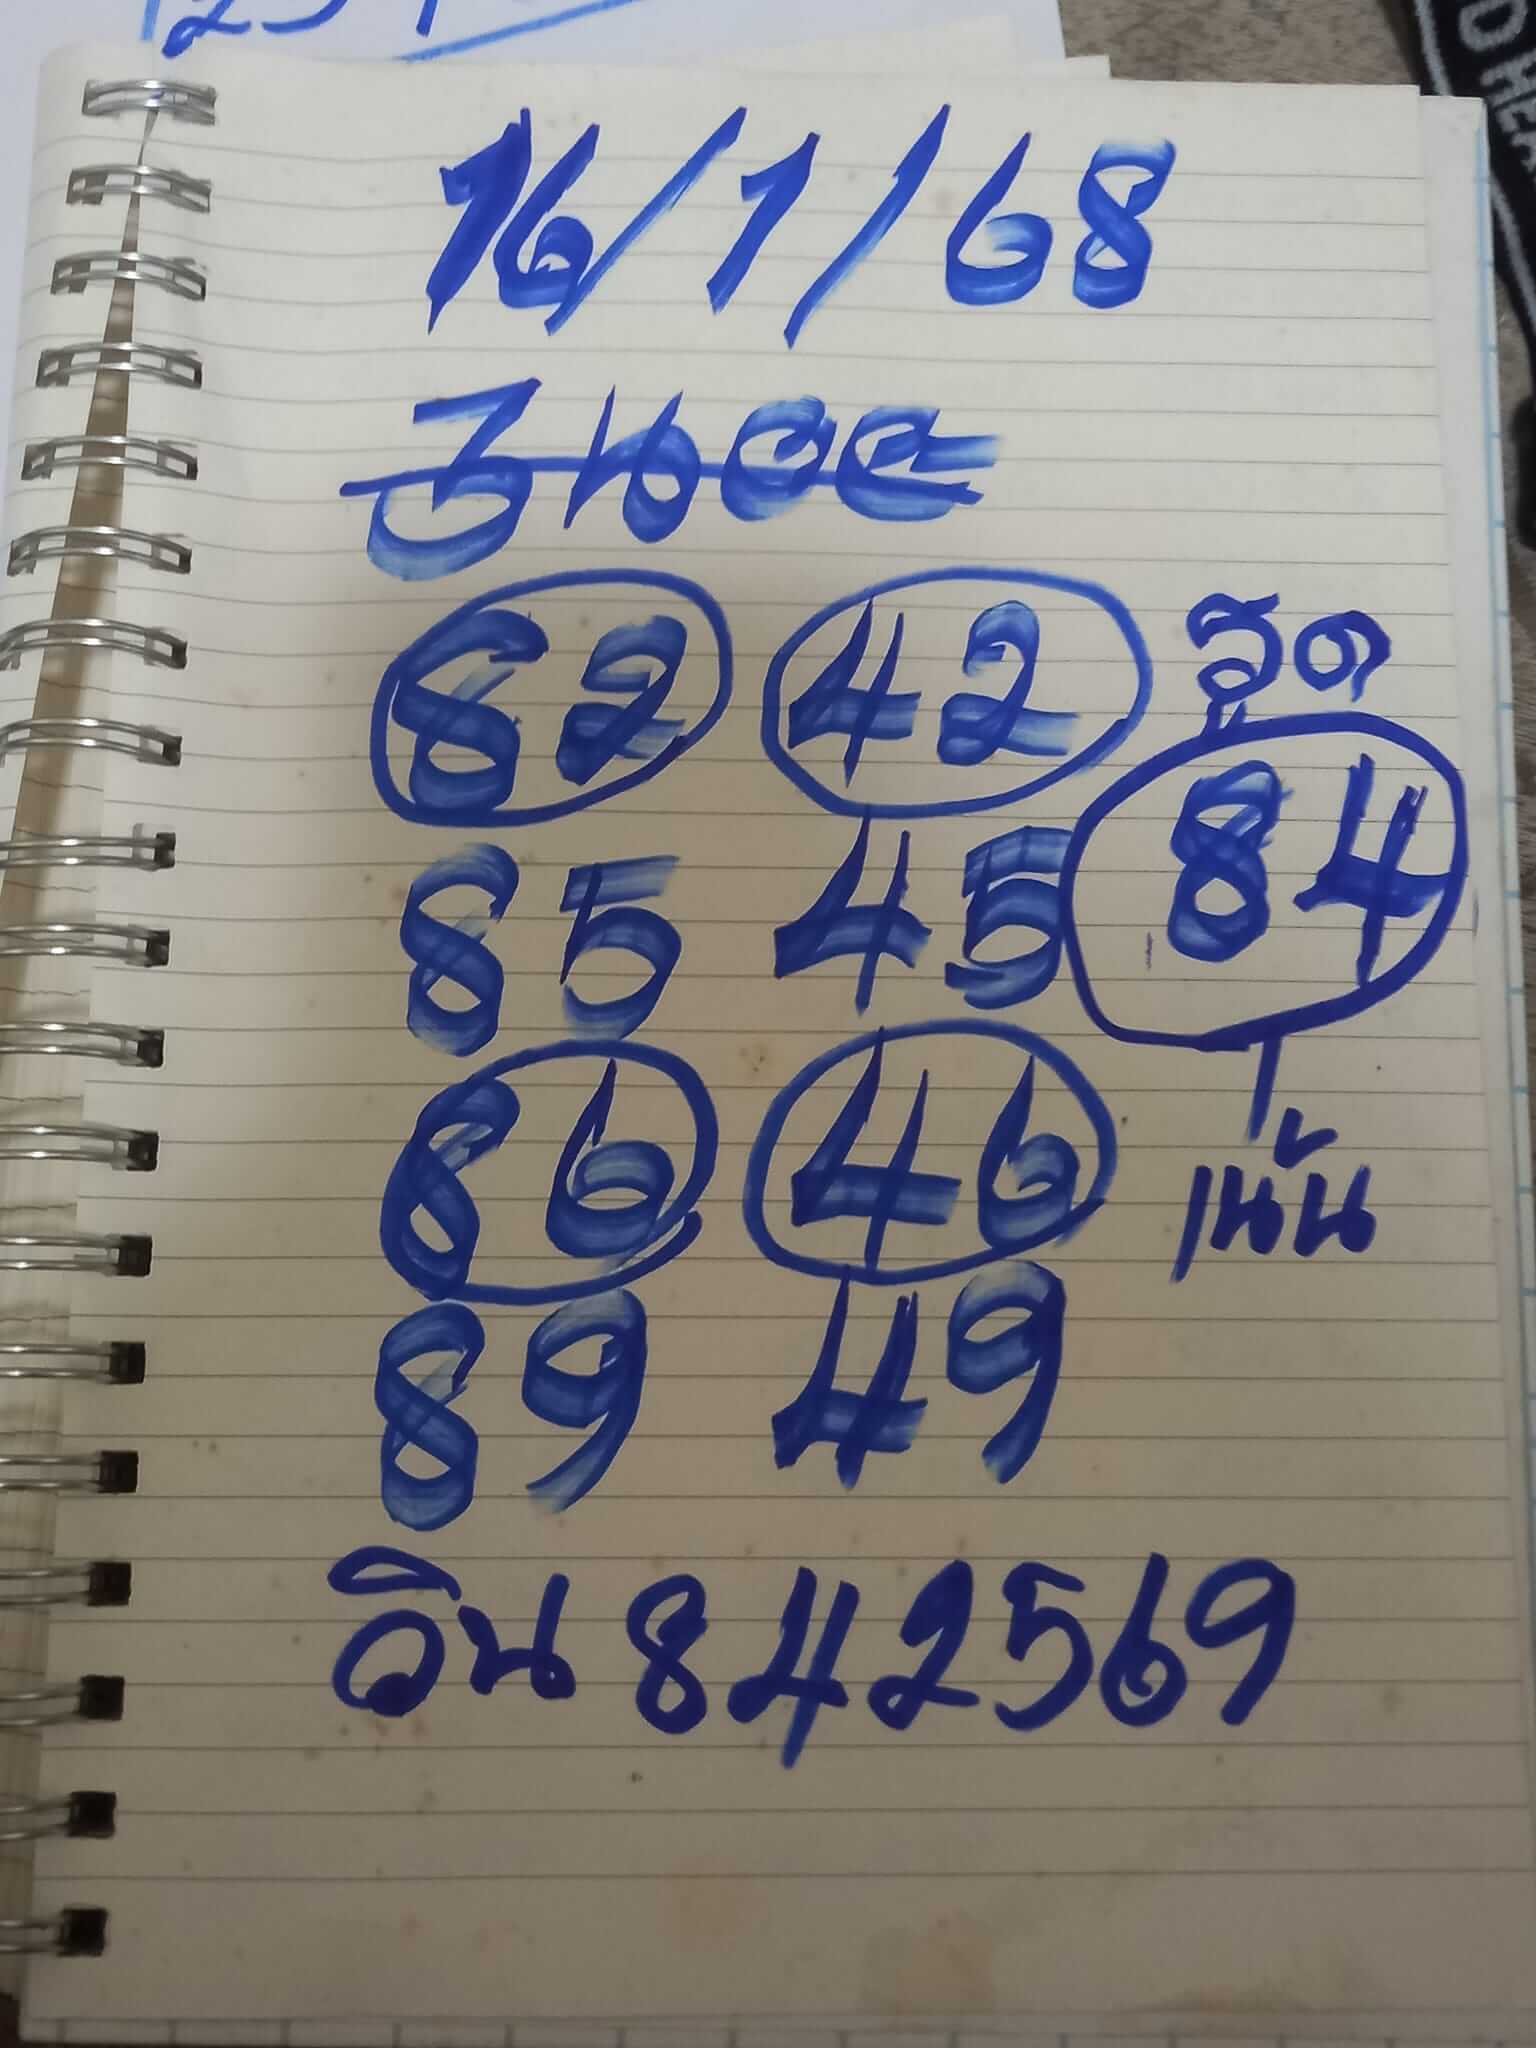 16/1/68
82 42 รูด
85 45 84
86 46 เน้น
89 49
วิน 842569